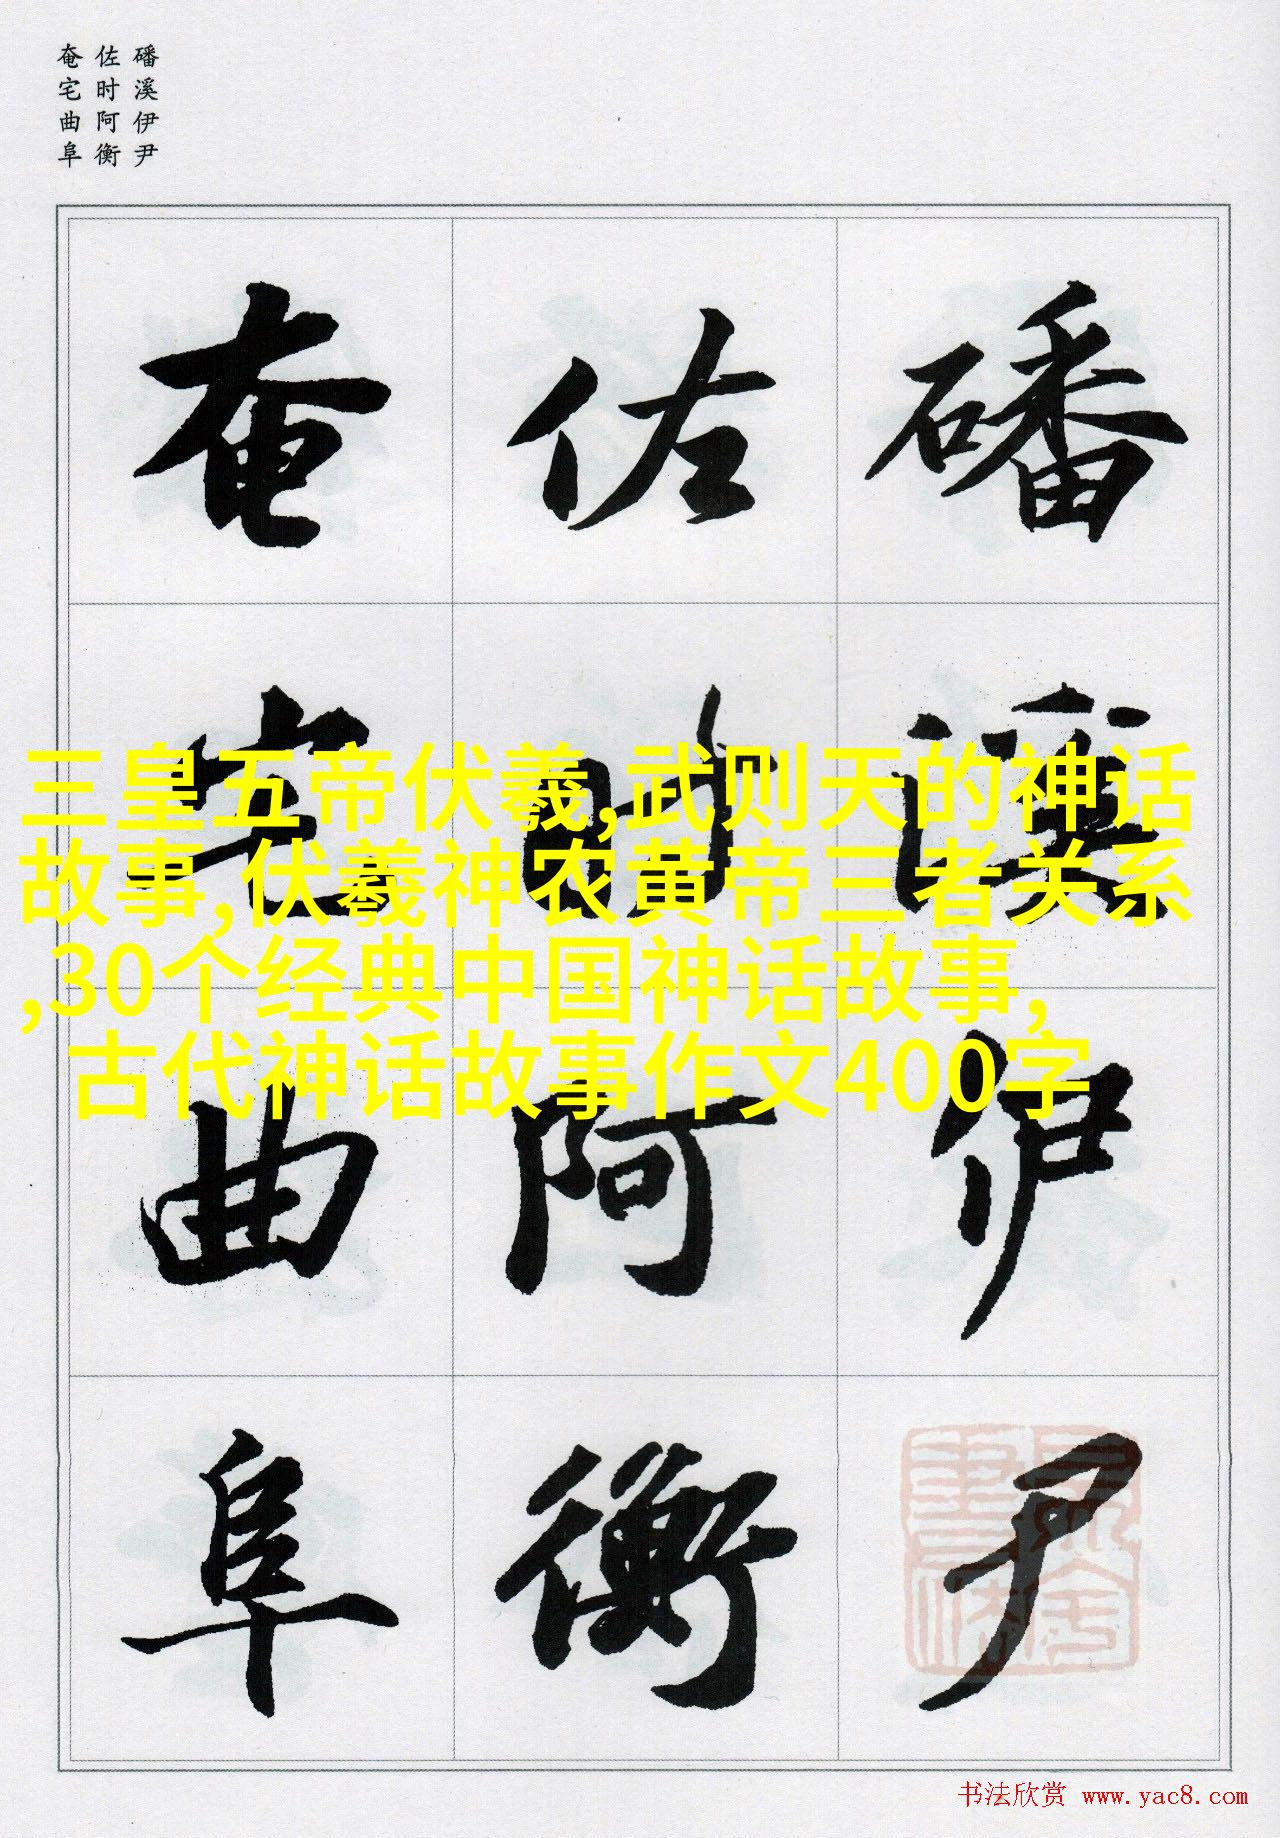 磻溪伊尹
佐时阿衡
奄宅曲阜
磻溪伊尹
佐时阿衡
奄宅曲阜
三皇五帝伏羲,武则天的神话
故事,伏羲神农黄帝三者关系
,30个经典中国神话故事,
古代神话故事作文400字
书法欣赏 www.yac8.com